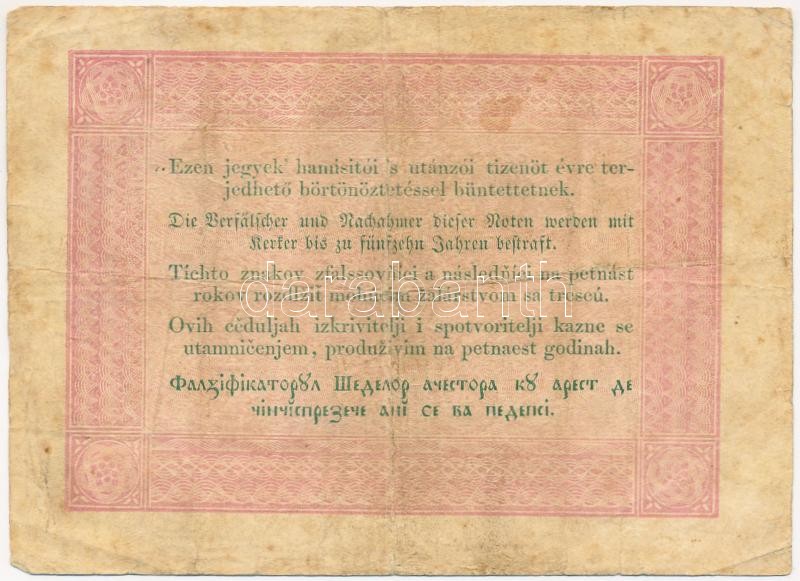 Ezen jegyek' hamisitói 's utánzói tizenöt évre ter-
jedhető börtönöztetéssel büntettetnek.
Die Verfälscher und Nachahmer dieser Noten werden mit
Kerker bis zu fünfzehn Jahren bestraft.
Tíchto znakov zfalssovňíci a následňíci na petnást
rokov rozdlžiť mohúcím žalárstvom sa trescú.
darabanth
Ovih cěduljah izkrivitelji i spotvoritelji kazne se
utamničenjem, produživim na petnaest godinah.
Фалзіфікаторꙋл Шеделор ачестора кꙋ арест де
чінчіспрезече ані се ва педепсі.